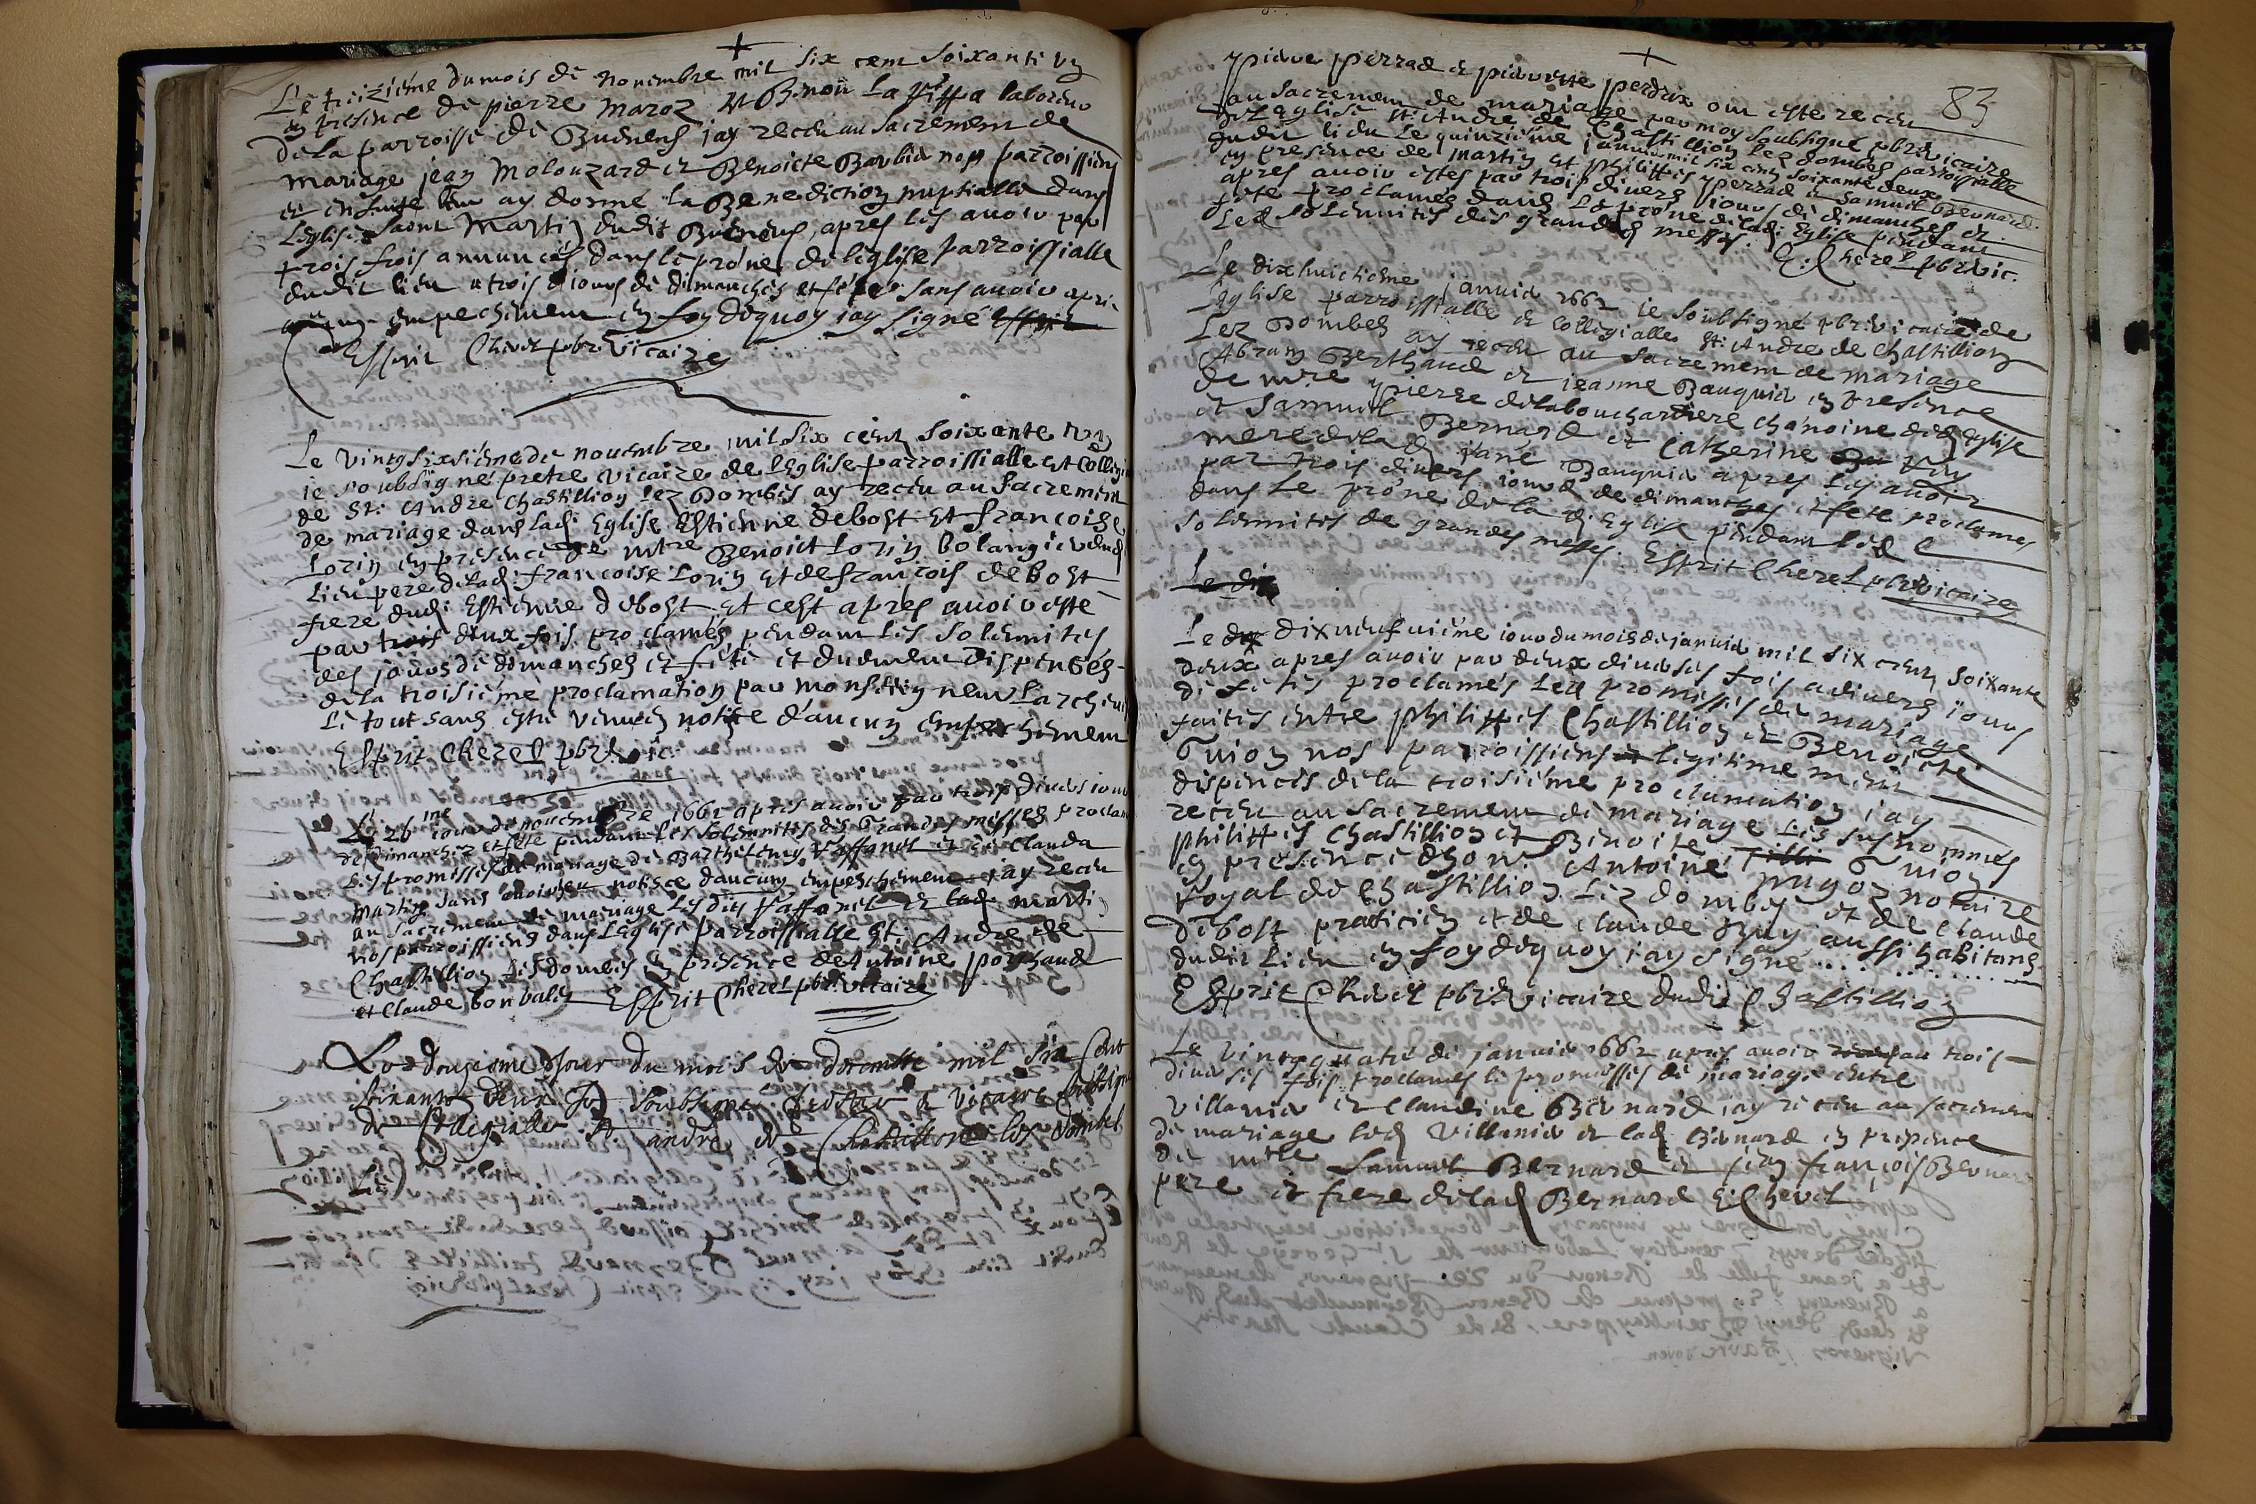 Le treizième du mois de novembre mil six cent soixante un
en presence de pierre maroz et Benoit La laboreur
de la parroisse de Bueneng jay receu au sacrement de
mariage jean molouzard et Benoicte Barbin noss parroissiens
et en suite leur ay donné la Benediction nuptialle dans
Leglise saint Martin dudit Bueneng, apres les avoir par
trois fois annuncés dans le prône de leglise parroissialle
dudit lieu a trois jours de dimanches et fete sans avoir apris
aucun empechement en foy dequoy jay signé
Esprit Cherel pbre vicaire
Le vingt sixsième de novembre mil six cent soixante un
ie soubsigné pretre vicaire de leglise parroissialle et collegi
de St. Andre Chastillion lez dombes ay receu au sacrement
de mariage dans lad. Eglise Estienne debost et francoise
Lorin en presence de mtre Benoict Lorin bolangier dud
Lieu pere de lad. francoise Lorin et de françois debost
frere dud. Estienne debost et cest apres avoir esté
par trois deux fois proclamés pendant les solemnites
des jours de dimanches et fete et duement dispensés
de la troisième proclamation par monseigneur Larchev
Le tout sans estre venu en notice d'aucun empeschement
Esprit Cherel pbre vic.
Le 26me iour de novembre 1661 apres avoir par trois divers iour
de dimanches et fete pendant les solemnites des Grandes messes proclam
Les promisses de mariage de Barthelemy et de Clauda
martin sans avoir eu notisce daucun empeschement jay receu
au sacrement de mariage lesdits et lad. marti
nos parroissiens dans leglise parroissialle St. Andre de
Chastillion les dombes en presence de Antoine porchaud
et Claude bonbalin Esprit Cherel pbre vicaire
Le dougieme Jour du mois de decembre mil six Cent
soixante deux Je soubsigne et vicaire
de Collegialle St andré de Chastillion les dombes
Le
83
ypierre perrad et pierrette perdrix ont esté receu
au sacrement de mariage par moy soubsigné pbre vicaire
de leglise St. Andre de Chastillion lez dombes parroissialle
dudit lieu le quinziéme janvier mil six cens soixante deux
en presence de martin et philippes yperrad et Samuel Bernard
apres avoir estés par trois divers jours de dimanches et
fete proclamés dans le prône de lad. Eglise pendant
Led solemnites des grandes messes. E. Cherel pbre vic.
Le dixhuictieme janvier 1662 ie soubsigné pbre vicaire de
Leglise parroissialle et collegialle St. Andre de Chastillion
Lez Dombes ay receu au sacrement de mariage
Abram Berthaud et jeanne Bauquin en presence
de mre ypierre delabouchardiere chanoine de lad Eglise
et Samuel Bernard et Catherine
mere de lad jane Bauquin apres les avoir
par trois divers iours de dimanches et fete proclames
dans le prône de la d. Eglise pendant led
solemnites de grandes messes. Esprit Cherel pbre vicaire
Le dix
Le dix dixneufuiéme iour du mois de janvier mil six cens soixante
deux apres avoir par deux diverses fois a divers jours
de fetes proclamés les promisses de mariage
faites entre philippes Chastillion et Benoicte
Guion nos parroissiens et legitimement
dispencés de la troisiéme proclamation jay
receu au sacrement de mariage les susnommés
philippes Chastillion et Binoite Guion
en presence dhon. Antoine pugoz notaire
royal de Chastillion lez dombes et de Claude
debost praticien et de claude Buy aussi habitans
dudit Lieu en foy dequoy jay signé
Esprit Cherel pbre vicaire dudit Chastillion
Le vingtquatre de janvier 1662 apres avoir par trois
diverses fois proclamés le promisses de mariage entre
Villanier et Claudine Bernard jay receu au sacrement
de mariage led Villanier et lad Bernard en presence
de mtre Samuel Bernard et françois Bernard
pere et frere de lad Bernard E. Cherel